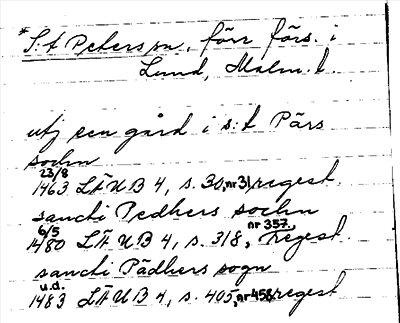 *S:t Peters sn, förr förs. i
Lund, Malm. l.
utj een gård i s:t Pärs
sochn
23/8
1463 LÄUB 4, s. 30, nr 31, regest.
sancti Pedhers sochn
6/5 nr 357.
1480 LÄUB 4, s. 318, regest.
sancti Pädhers sogn
u.d.
1483 LÄUB 4, s. 405, nr 458, regest